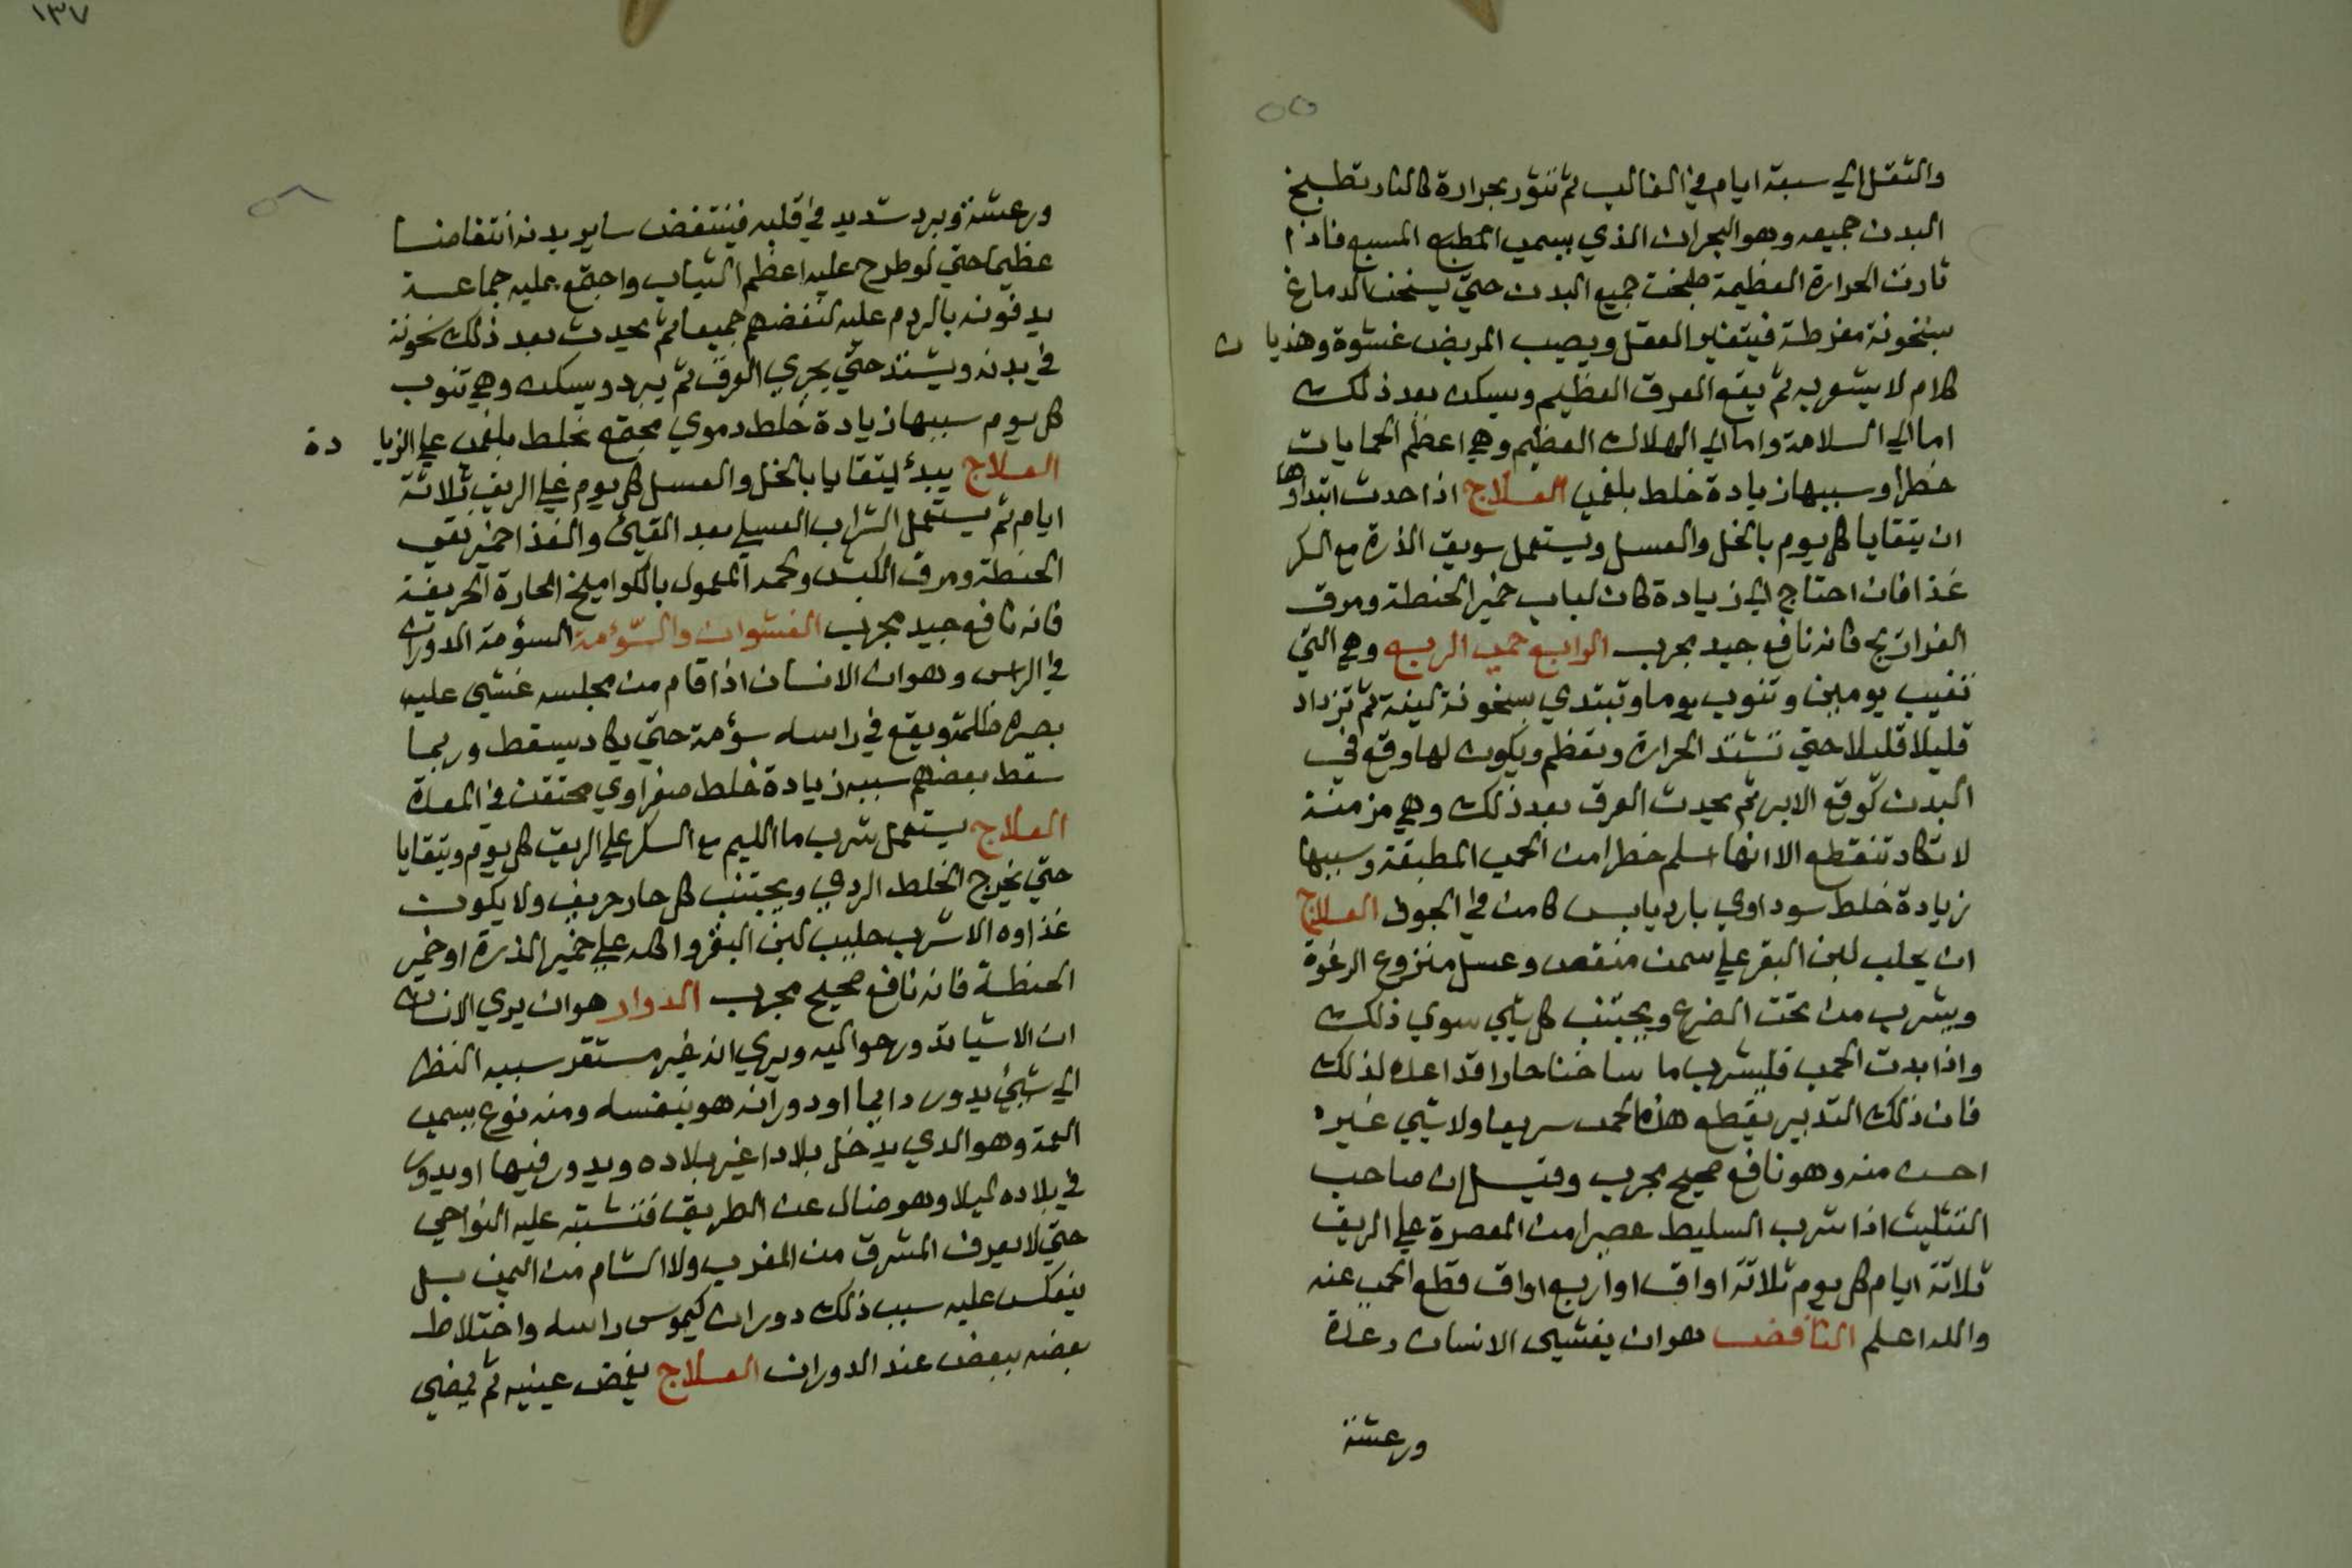 والثقل الي سبعة ايام في الغالب ثم تثور بحرارة كالنار تطبخ
البدن جميعه وهو البحران الذي يسمي المطبه المسبع فاذا
ثارت الحرارة العظيمة طبخت جميع البدن حتي يسخن الدماغ
سخونة مفرطة فيتغير العقل ويصيب المريض غشوة وهذيان
كلام لا يشعر به ثم يقع العرق العظيم ويسكن بعد ذلك
اما الي السلامة واما الي الهلاك العظيم وهي اعظم الحمايات
خطرا وسببها زيادة خلط بلغمي العلاج اذا حدث ابتداوها
ان يتقايا كل يوم بالخل والعسل ويستعمل سويق الذرة مع السكر
غذا فان احتاج الي زيادة كان لباب خمير الحنطة ومرق
الفراريج فانه نافع جيد مجرب الرابع حمي الربع وهي التي
تغيب يومين وتنوب يوما وتبتدي بسخونة لينة ثم تزداد
قليلا قليلا حتي تشتد الحرارة وتعظم ويكون لها وقع في
البدن كوقع الابر ثم يحدث العرق بعد ذلك وهي مزمنة
لا تكاد تنقطع الا انها اسلم خطرا من الحمي المطبقة وسببها
زيادة خلط سوداوي بارد يابس كامن في الجوف العلاج
ان يحلب لبن البقر علي سمن منقص وعسل منزوع الرغوة
ويشرب من تحت الضرع ويجتنب كل شي سوي ذلك
واذا بدت الحمي فليشرب ما ساخنا حارا قد اعده لذلك
فان ذلك التدبير يقطع هذه الحمي سريعا ولا شي غيره
احسن منه وهو نافع صحيح مجرب وقيل ان صاحب
التثليث اذا شرب السليط عصرا من المعصرة علي الريق
ثلاثة ايام كل يوم ثلاثة اواق او اربع اواق قطع الحمي عنه
والله اعلم النافض هو ان يغشي الانسان رعدة
ورعشة
١٣٧
ورعشة وبرد شديد في قلبه فينتفض ساير بدنه انتفاضا
عظيما حتي لو طرح عليه اعظم الثياب واجتمع عليه جماعة
يدفونه بالردم عليه لنفضهم جميعا ثم يحدث بعد ذلك سخونة
في بدنه ويشتد حتي يجري العرق ثم يبرد ويسكن وهي تنوب
كل يوم سببها زيادة خلط دموي مجتمع بخلط بلغمي علي الزيادة
العلاج يبدأ ليتقايا بالخل والعسل كل يوم علي الريق ثلاثة
ايام ثم يستعمل الشراب العسلي بعد القيئ والغذا خمير نقي
الحنطة ومرق الكبش ولحمه المعمول بالكواميخ الحارة الحريفة
فانه نافع جيد مجرب الغشوات والسّؤمة السؤمة الدوران
في الراس وهو ان الانسان اذا قام من مجلسه غشي عليه
بصره ظلمة ويقع في راسه سؤمة حتي يكاد يسقط وربما
سقط بعضهم سببه زيادة خلط صفراوي محتقن في المعدة
العلاج يستعمل شرب ما الليم مع السكر علي الريق كل يوم ويتقايا
حتي يخرج الخلط الردي ويجتنب كل حار حريف ولا يكون
غذاوه الا شرب حليب لبن البقر واكله علي خمير الذرة او خمير
الحنطة فانه نافع صحيح مجرب الدوار هو ان يري الانسان
ان الاشيا تدور حواليه ويري انه غير مستقر سببه النظر
الي شيئ يدور دايما او دورانه هو بنفسه ومنه نوع يسمي
التمة وهو الدي يدخل بلادا غير بلاده ويدور فيها او يدور
في بلاده ليلا وهو ضال عن الطريق فتشتبه عليه النواحي
حتي لا يعرف المشرق من المغرب ولا الشام من اليمن بل
ينعكس عليه سبب ذلك دوران كيموس راسه واختلاط
بعضه ببعض عند الدوران العلاج يغمض عينيه ثم يمضي